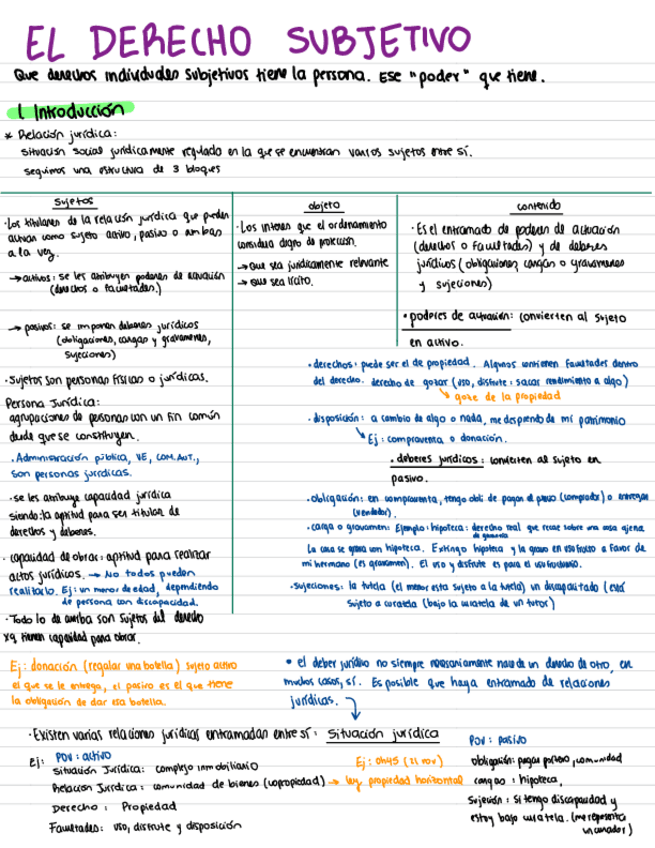 EL DERECHO SUBJETIVO
Que derechos individuales subjetivos tiene la persona. Ese "poder" que tiene.
1 Introducción
* Relación jurídica:
situación social jurídicamente regulado en la que se encuentran varios sujetos entre sí.
seguimos una estructura de 3 bloques
Sujetos
·Los titulares de la relación jurídica que pueden
actuar como sujeto activo, pasivo o ambas
a la vez.
→activos: se les atribuyen poderes de actuación
(derechos o facultades.)
→ pasivos: se imponen deberes jurídicos
(obligaciones, cargas y gravámenes,
sujeciones)
·Sujetos son personas físicas o jurídicas.
Persona Jurídica:
agrupaciones de personas con un fin común
desde que se constituyen.
·Administración pública, UE, COM.AUT.,
son personas jurídicas.
·se les atribuye capacidad jurídica
siendo: la aptitud para ser titular de
derechos y deberes.
· capacidad de obrar: aptitud para realizar
actos jurídicos. → No todos pueden
realizarlo. Ej: un menor de edad, dependiendo
de persona con discapacidad.
·Todo lo de arriba son sujetos del derecho
xq tienen capacidad para obrar.
Ej: donación (regalar una botella) sujeto activo
el que se le entrega, el pasivo es el que tiene
la obligación de dar esa botella.
objeto
·Los interes que el ordenamiento
considera digno de protección.
→Que sea jurídicamente relevante
→ Que sea lícito.
contenido
·Es el entramado de poderes de actuación
(derechos o facultades) y de deberes
jurídicos (obligaciones, cargas o gravámenes
y sujeciones)
• poderes de actuación: convierten al sujeto
en activo.
·derechos: puede ser el de propiedad. Algunos contienen facultades dentro
del derecho. derecho de gozar (uso, disfrute: sacar rendimiento a algo)
goce de la propiedad
·disposición: a cambio de algo o nada, me desprendo de mi patrimonio
Ej: compraventa o donación.
·deberes jurídicos: convierten al sujeto en
pasivo.
·obligación: en compraventa, tengo obli de pagar el precio (comprador) o entregar
(vendedor).
·carga o gravamen: Ejemplo: hipoteca: derecho real que recae sobre una cosa ajena
de garantía
La casa se grava con hipoteca. Extingo hipoteca y la gravo en usufructo a favor de
mi hermano (es gravamen). El uso y disfrute es para el usufructuario.
·sujeciones: la tutela (el menor esta sujeto a la tutela) un discapacitado (está
sujeto a curatela (bajo la curatela de un tutor)
• el deber jurídico no siempre necesariamente nace de un derecho de otro, en
muchos casos, sí. Es posible que haya entramado de relaciones
jurídicas.
·Existen varias relaciones jurídicas entramadas entre sí: Situación jurídica
Ej: POV: activo
Situación Jurídica: complejo inmobiliario
Relación Jurídica: comunidad de bienes (copropiedad) → ley propiedad horizontal
Derecho: Propiedad
Facultades: uso, disfrute y disposición
Ej: 0h45 (21 nov)
POV: pasivo
obligación: pagar portero, comunidad
cargas: hipoteca,
Sujeción: si tengo discapacidad y
estoy bajo curatela. (me representa
un curador)